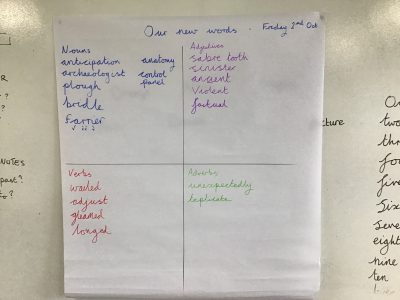 Our new words . Friday 2nd Oct
Nouns
anticipation anatomy
archaeologist control
panel
plough
bridle
Farrier
Adjectives
sabre tooth
sinister
ancient
Violent
factual
Verbs
wailed
adjust
gleamed
longed
Adverbs
unexpectedly
replicate
NOTES
past?
to?
cture
Ou
two
thr
fou
five
Six
Seve
eight
nine
ten